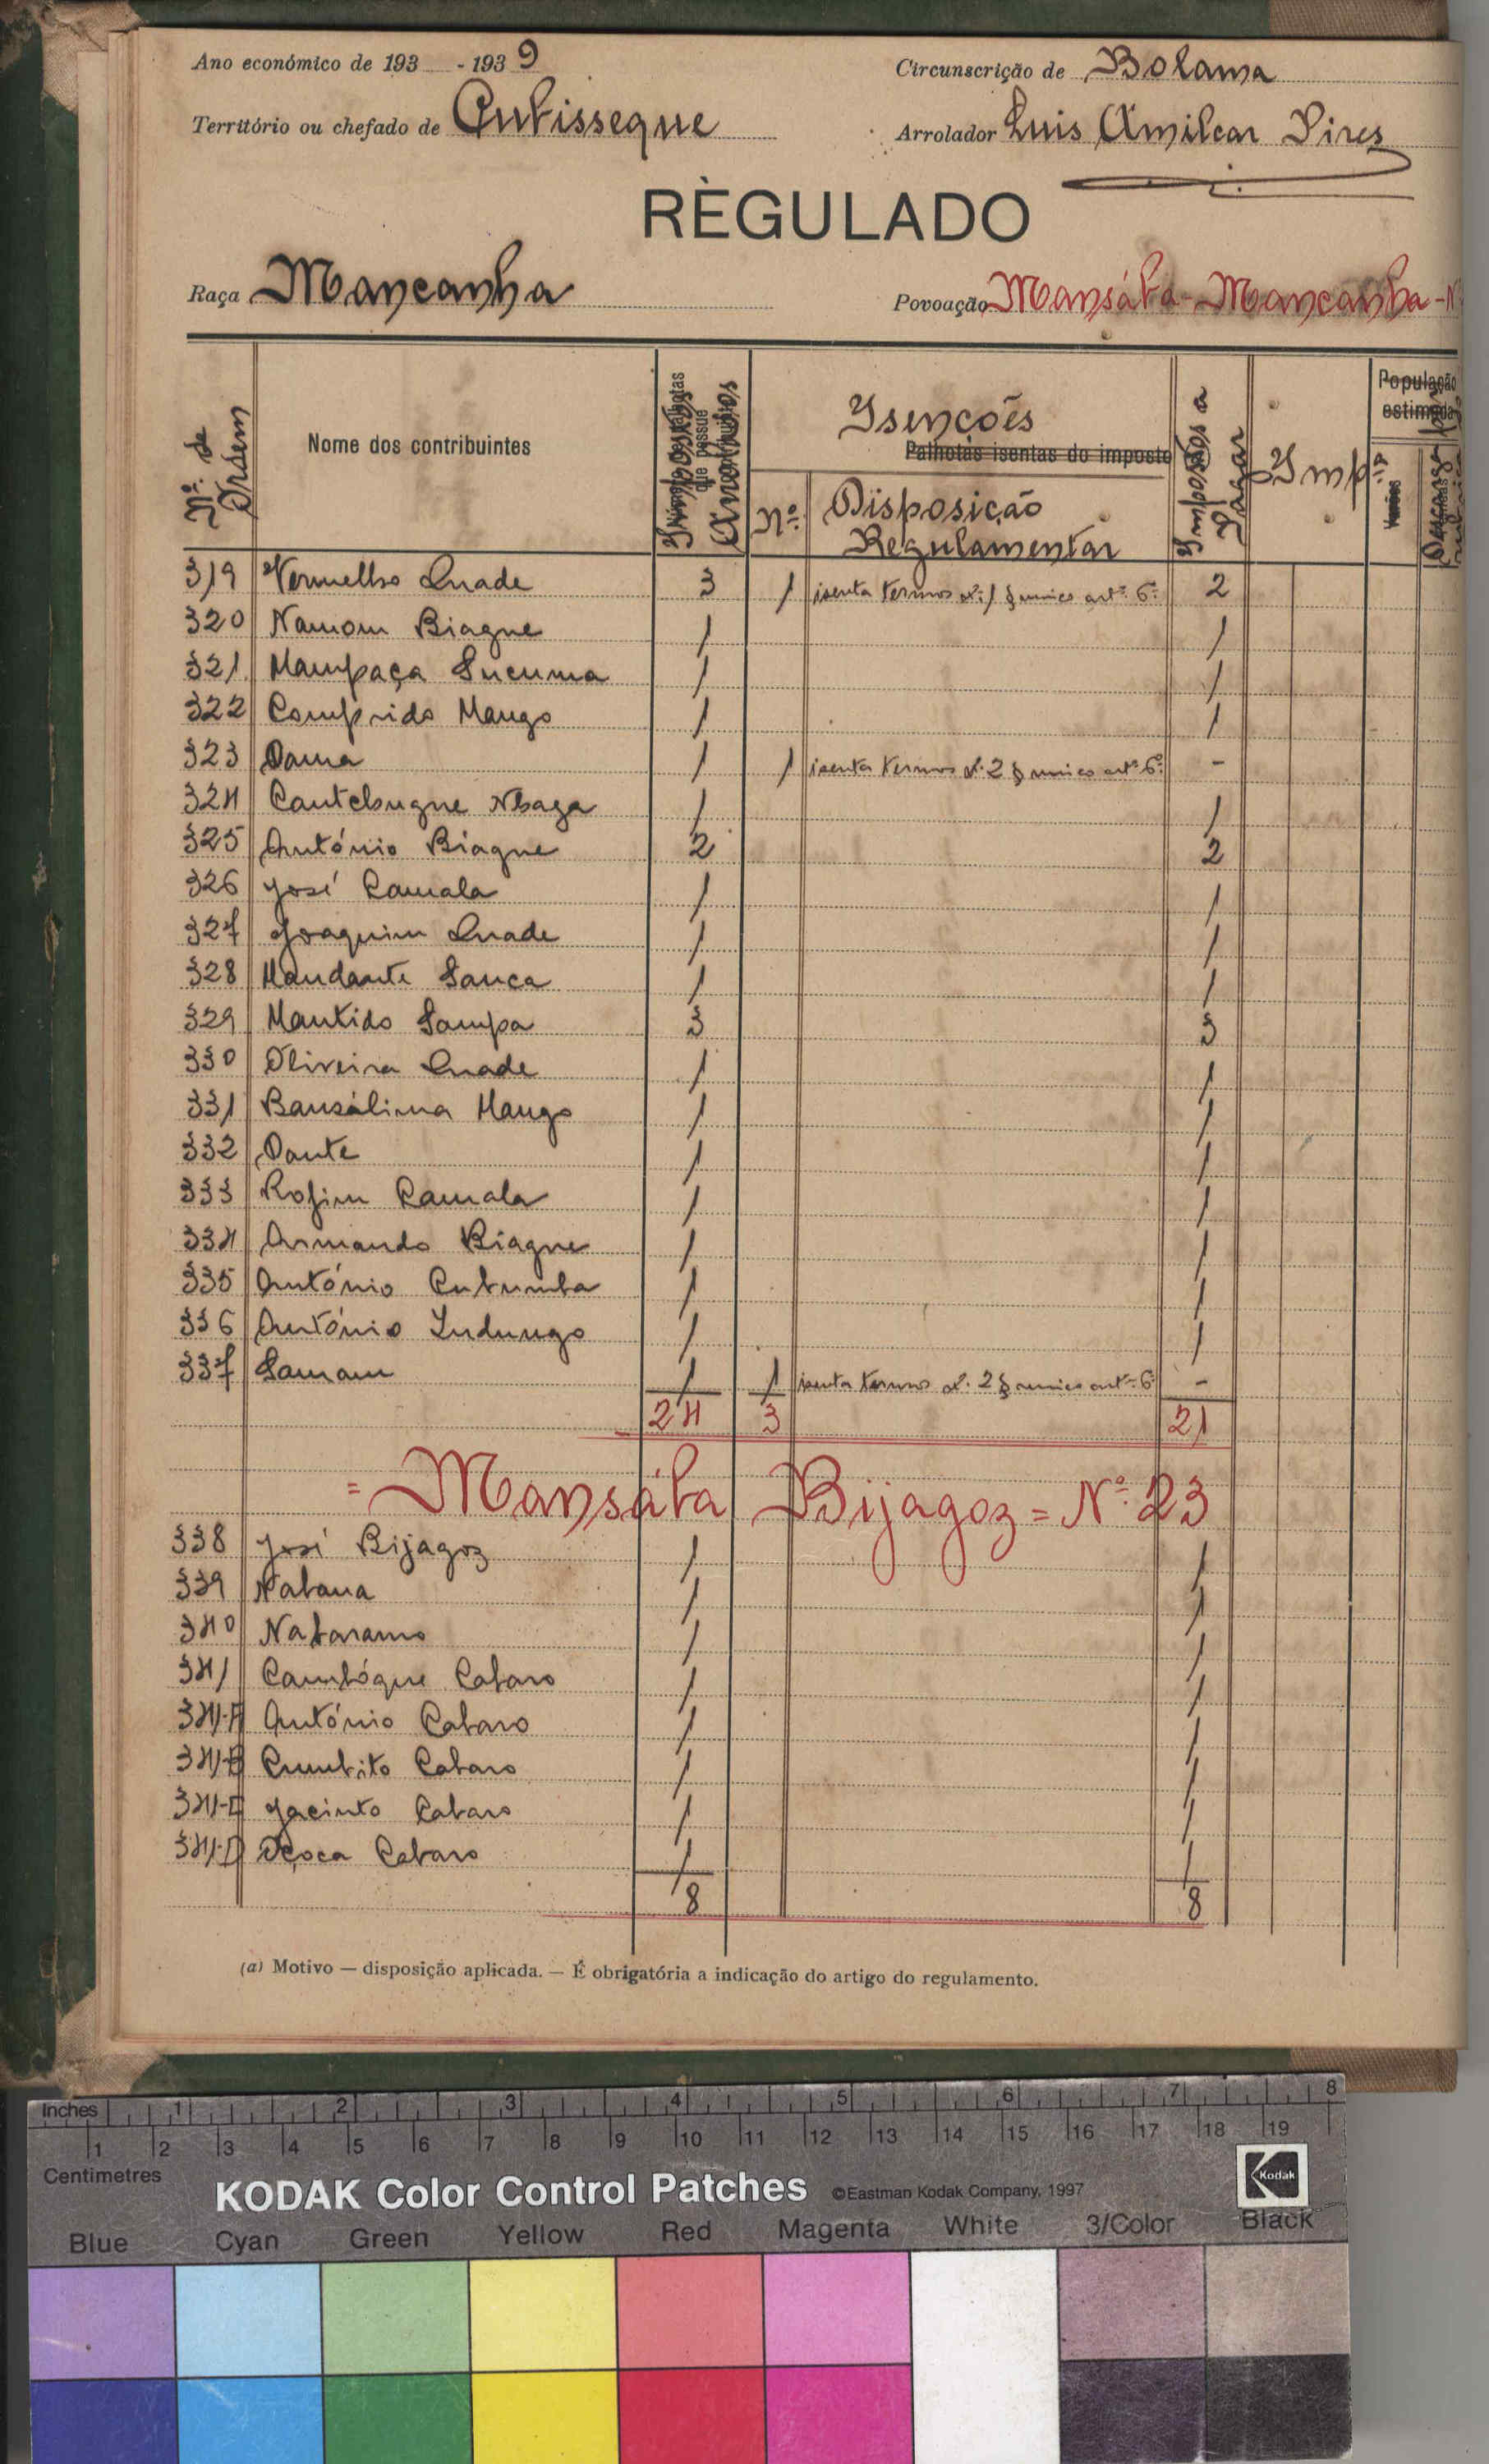 Ano económico de 193 - 1939 Circunscrição de Bolama
Território ou chefado de Antissegue Arrolador Luis Amilcar Pires
RÈGULADO
Raça Mancanha Povoação Mansába-Mancanha-Nº
Nº. de Ordem Nome dos contribuintes Impostos Arrolados Isenções Impostos a Pagar Imp. População estimada
Palhotas isentas do imposto
Nº. Disposição Regulamentar Varões
319 Vermelho Quade 3 1 isenta termos nº.1 § unico artº. 6º. 2
320 Namom Biague 1 1
321 Mampaça Sucuma 1 1
322 Comprido Mango 1 1
323 Dama 1 1 isenta termos nº.2 § unico artº. 6º. -
324 Cantchugue Nhaga 1 1
325 António Biague 2 2
326 José Camala 1 1
327 Joaquim Quade 1 1
328 Mandante Sanca 1 1
329 Mantido Sampa 3 3
330 Oliveira Quade 1 1
331 Bansálima Mango 1 1
332 Dante 1 1
333 Rofim Camala 1 1
334 Armando Biague 1 1
335 António Cutumba 1 1
336 António Indungo 1 1
337 Samam 1 1 isenta termos nº. 2 § unico artº. 6º -
24 3 21
= Mansába Bijagoz = Nº. 23
338 José Bijagoz 1 1
339 Nabana 1 1
340 Nabaramo 1 1
341 Cambóque Cabaro 1 1
341-A António Cabaro 1 1
341-B Cumbito Cabaro 1 1
341-C Jacinto Cabaro 1 1
341-D Cabaro 1 1
8 8
(a) Motivo — disposição aplicada. — É obrigatória a indicação do artigo do regulamento.
Inches 1 2 3 4 5 6 7 8
1 2 3 4 5 6 7 8 9 10 11 12 13 14 15 16 17 18 19
Centimetres
KODAK Color Control Patches ©Eastman Kodak Company, 1997 Kodak
Blue Cyan Green Yellow Red Magenta White 3/Color Black